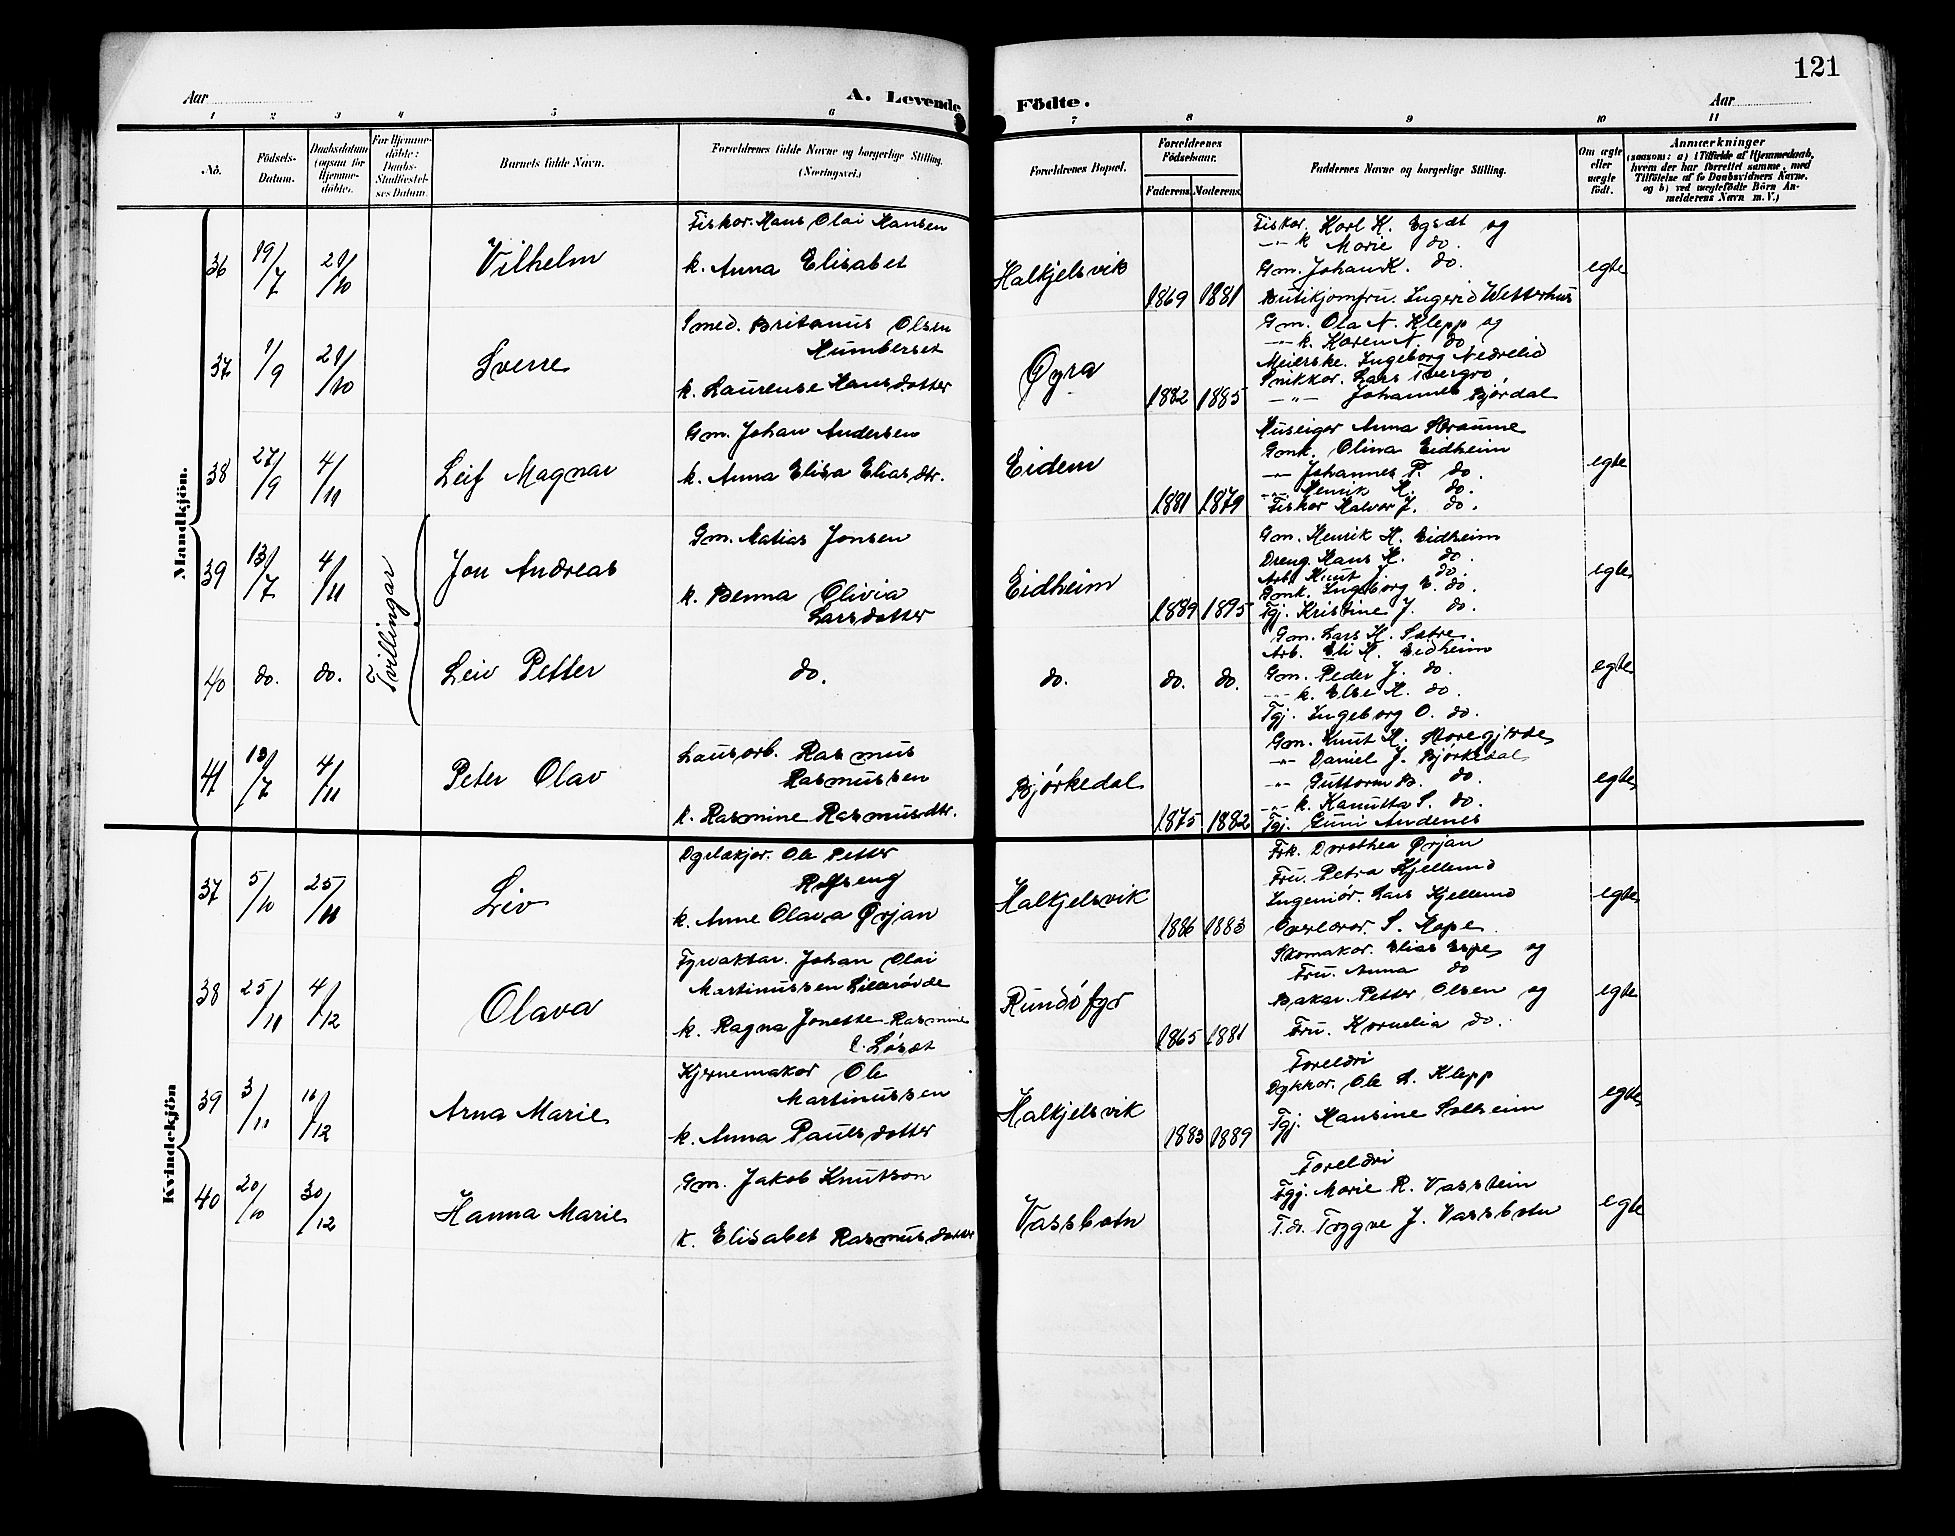 121
Aar
A. Levende Födte.
Aar
1 2 3 4 5 6 7 8 9 10 11
No.
Födsels-Datum.
Daabsdatum (ogsaa for Hjemmedöbte).
For Hjemmedöbte: Daabs-Stadfæstelses Datum.
Barnets fulde Navn.
Forældrenes fulde Navne og borgerlige Stilling. (Næringsvei.)
Forældrenes Bopæl.
Forældrenes Födselsaar.
Faderens. Moderens.
Faddernes Navne og borgerlige Stilling.
Om ægte eller uægte födt.
Anmærkninger
(saasom: a) i Tilfælde af Hjemmedaab, hvem der har forrettet samme, med Tilföielse af to Daabsvidners Navne, og b) ved uægtefödte Börn Anmelderens Navn m. V.)
Mandkjön.
36 19/7 29/10 Vilhelm
Fiskar. Hans Olai Hansen
k. Anna Elisabet
Halkjelsvik 1869 1881
Fiskar. Karl K. Egset og
-"- k Marie do.
Gm. Johan K. do.
Butikjomfru. Ingerid Westerhus
egte
37 1/9 29/10 Sverre
Smed. Britanus Olsen
Humberset
k. Laurense Hansdotter
Øyra 1882 1885
Gm. Ola N. Klepp og
-"- k. Karen N. do
Meierske. Ingeborg Nedrelid
Snikkar. Lars Tvergro
-"- Johannes Bjørdal
38 27/9 4/11 Leif Magnar
Gm. Johan Andersen
k. Anna Elisa Eliasdtr.
Eidem 1881 1879
Huseigar Anna Straume
Gmk. Olina Eidheim
-"- Johannes P. do.
-"- Henrik H. do.
Fiskar Halvor J. do.
egte
Tvillingar
39 13/7 4/11 Jon Andreas
Gm. Matias Jonsen
k. Benna Olivia
Larsdotter
Eidheim 1889 1895
Gm. Henrik H. Eidheim
Dreng. Hans H. do.
Arb. Knut J. do.
Gmk. Ingeborg E. do.
Tgj. Kristine J. do.
egte
40 do. do. Leiv Petter
do.
do. do. do.
Gm. Lars H. Sætre.
Arb. Eli H. Eidheim
Gm. Peder J. do.
-"- k. Else H. do.
Tgj. Ingeborg O. do.
egte
41 13/7 4/11 Peter Olav
Lausarb. Rasmus
Rasmussen
k. Rasmine Rasmusdtr.
Bjørkedal 1875 1882
Gm. Knut H. Storegjerde
-"- Daniel J. Bjørkedal
-"- Guttorm B. do.
-"- k. Kanutta S. do.
Tgj. Guni Andenes
egte
Kvindekjön
37 5/10 25/11 Liv
Ole Petter
Rolfseng
k. Anne Olava Ørjan
Halkjelsvik 1886 1883
Frk. Dorothea Ørjan
Fru. Petra Kjellund
Ingeniør. Lars Kjellund
Overlærar. S. Hope
egte
38 25/11 4/12 Olava
Fyrvaktar. Johan Olai
Martinussen
k. Ragna Jonette Rasmine
f. Løset
Rundö fyr 1865 1881
Skomakar. Elias Espe og
Fru. Anna do
Bakar. Petter Olsen og
Fru. Kornelia do.
egte
39 3/11 16/12 Arna Marie
Kjernemakar Ole
Martinussen
k. Anna Paulsdotter
Halkjelsvik 1883 1889
Foreldri
Dykkar. Ole A. Klepp
Tgj. Hansine Solheim
egte
40 20/10 30/12 Hanna Marie
Gm. Jakob Knutson
k. Elisabet Rasmusdotter
Vassbotn
Foreldri
Tgj. Marie R. Vasstein
T.dr. Trygve J. Vassbotn
egte